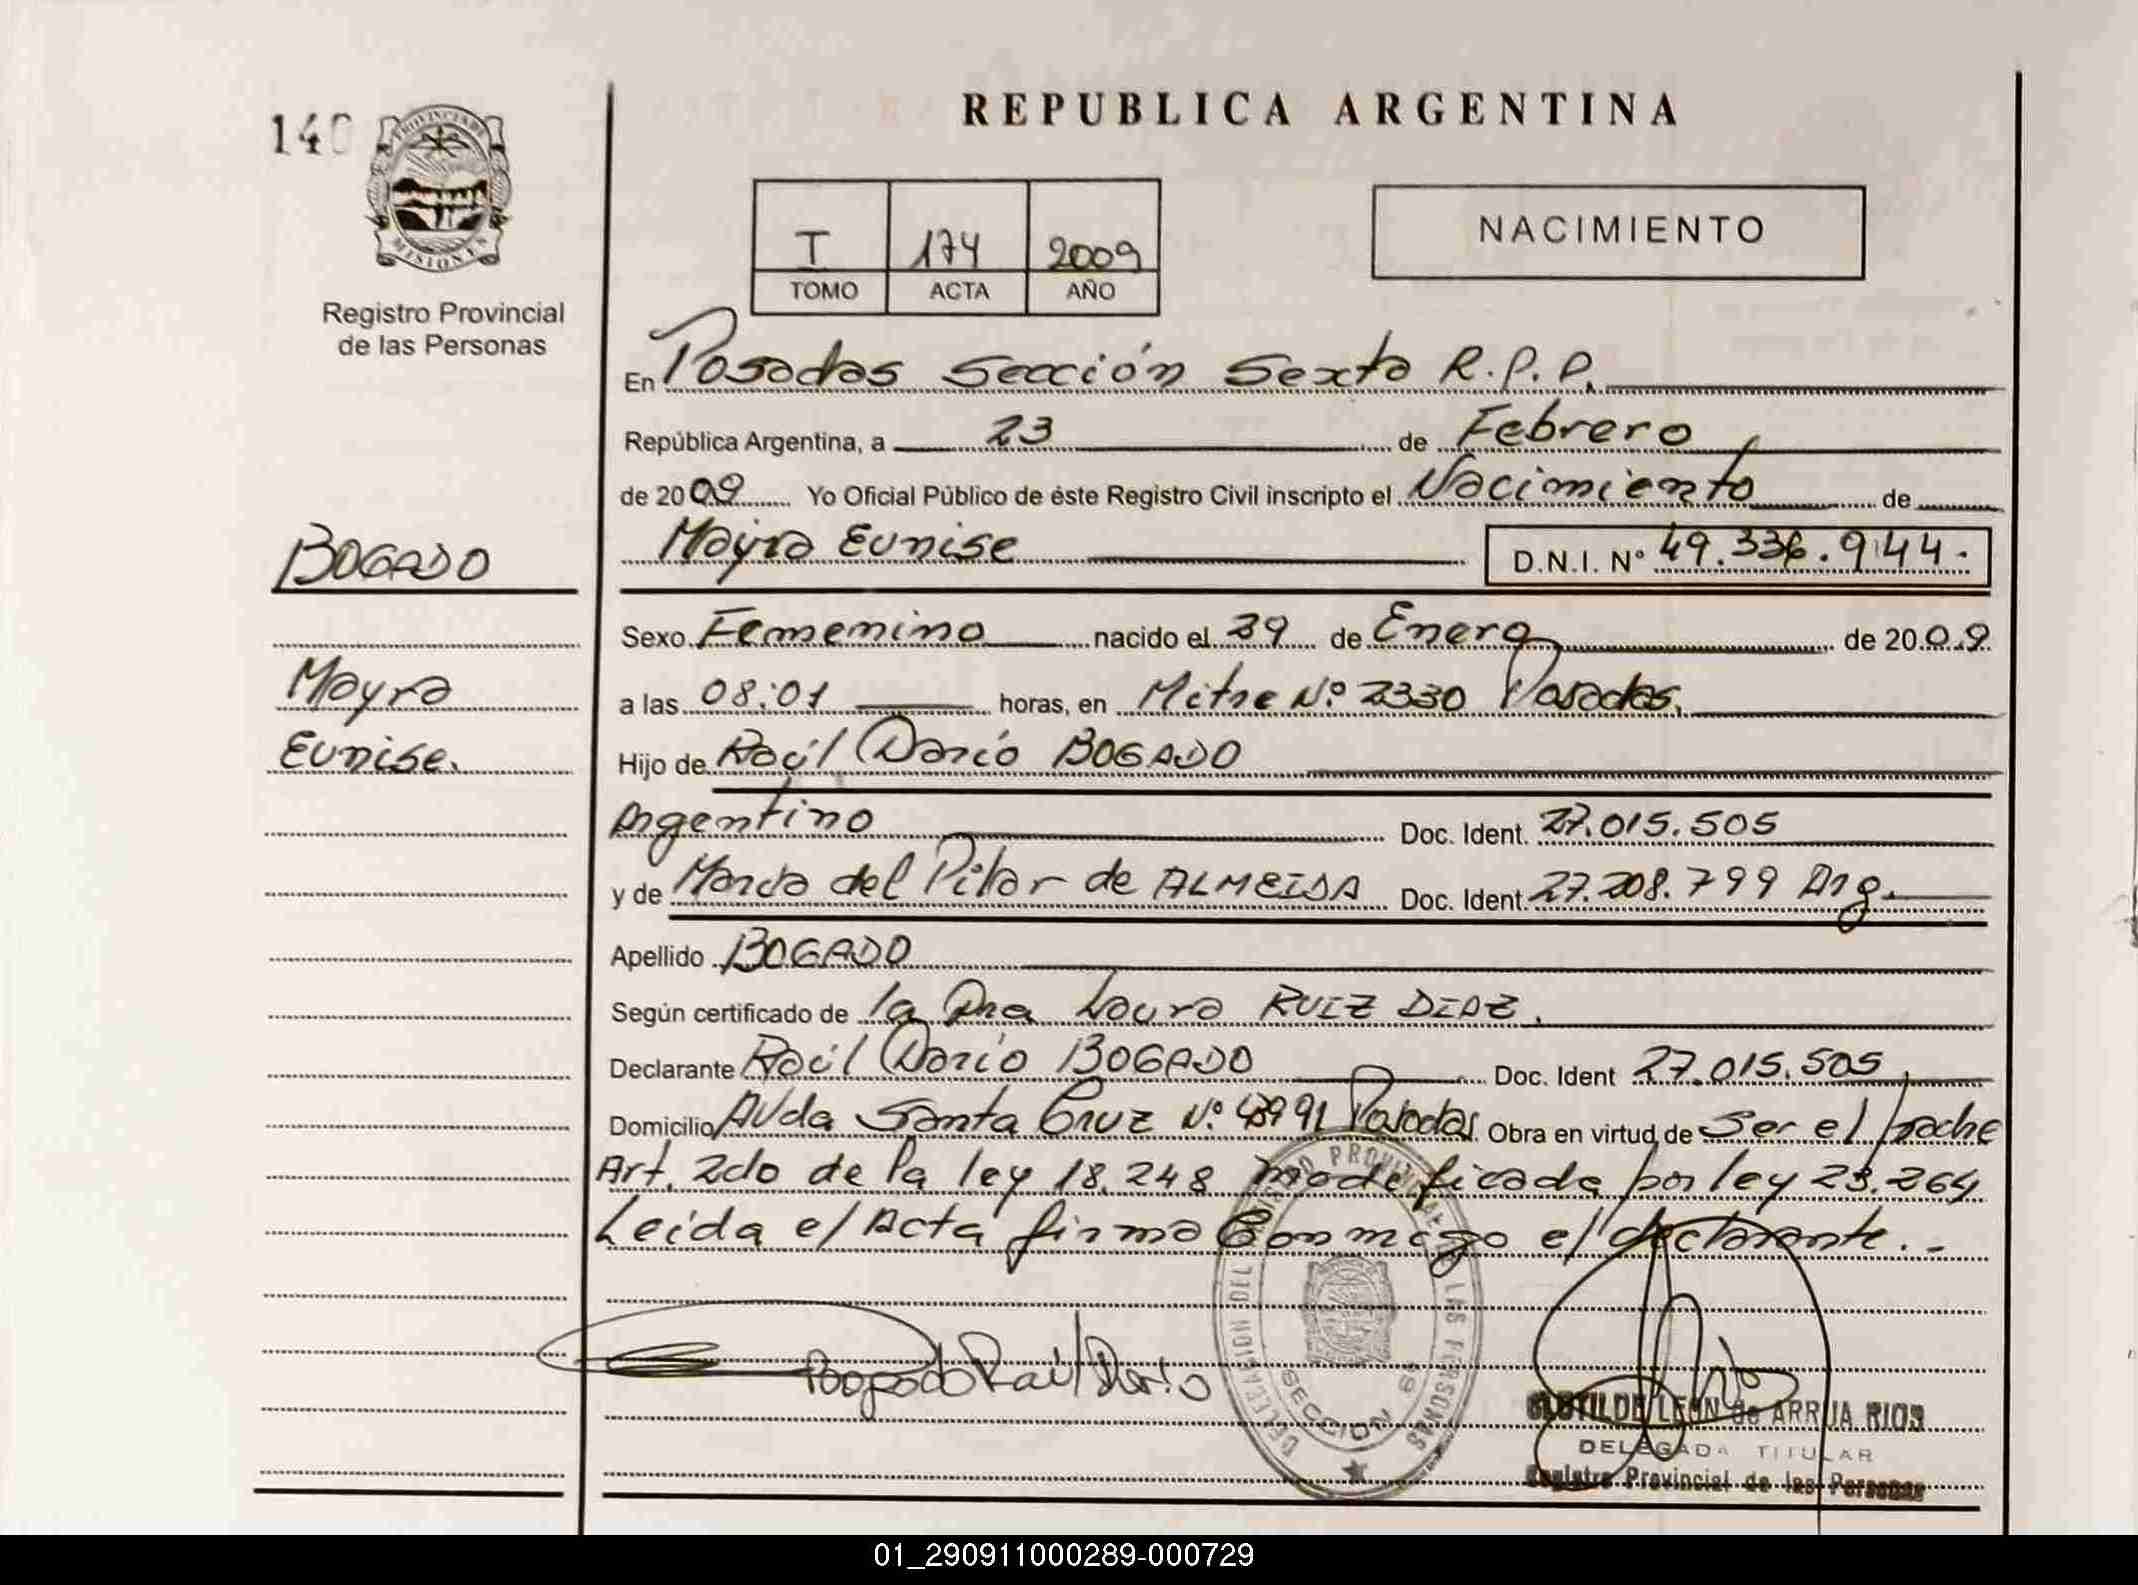 REPUBLICA ARGENTINA
PROVINCIA DE
MISIONES
Registro Provincial
de las Personas
T 174 2009
TOMO ACTA AÑO
NACIMIENTO
En Posadas Sección Sexta R.P.P.
República Argentina, a 23 de Febrero
de 2009 Yo Oficial Público de éste Registro Civil inscripto el Nacimiento de
Mayra Eunise D.N.I. Nº 49.336.944.
BOGADO
Mayra
Eunise.
Sexo Femenino nacido el de Enero de 2009
a las 08:01 horas, en Mitre Nº 2330 Posadas.
Hijo de Raúl Darío BOGADO
Argentino Doc. Ident. 27.015.505
y de María del Pilar de ALMEIDA Doc. Ident. 27.208.799 Arg.
Apellido BOGADO
Según certificado de la Dra Laura RUIZ DIAZ.
Declarante Raúl Darío BOGADO Doc. Ident 27.015.505
Domicilio Avda Santa Cruz Nº Posadas. Obra en virtud de Ser el padre
Art. 2do de la ley 18.248 modificada por ley 23.264
Leida el Acta firma Conmigo el declarante.-
Bogado Raúl Dario
DELEGACION DEL REGISTRO PROVINCIAL DE LAS PERSONAS
SECCION 6ª
CLOTILDE LEON de ARRUA RIOS
DELEGADA TITULAR
Registro Provincial de las Personas
01_290911000289-000729